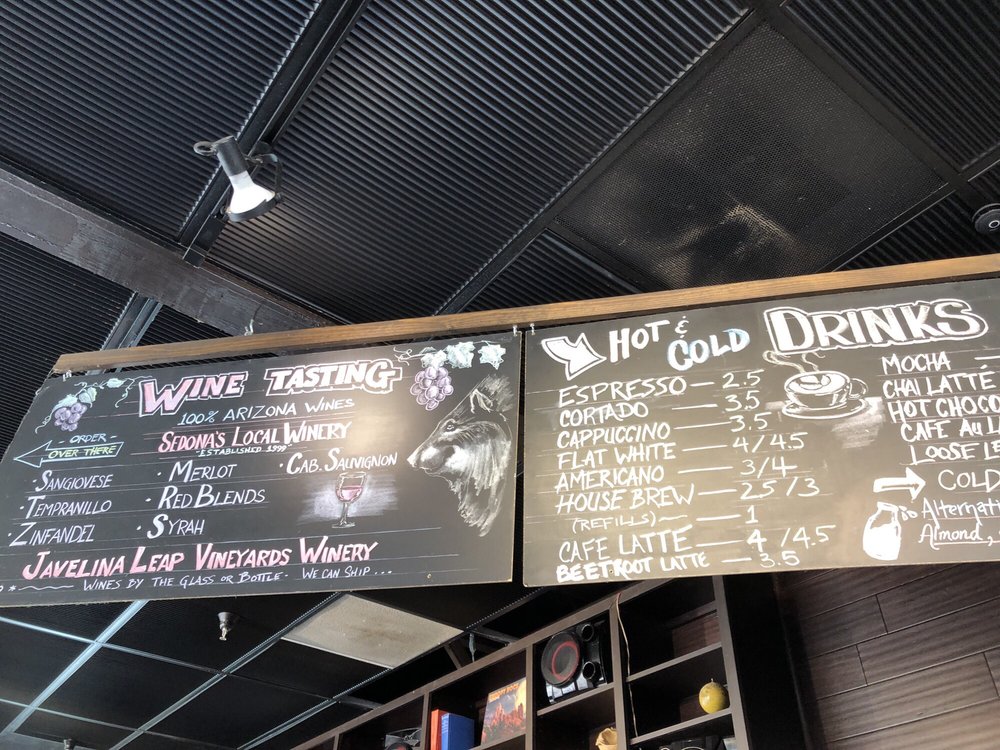 WINE TASTING
100% ARIZONA WINES
SEDONA'S LOCAL WINERY
ESTABLISHED 1999
- ORDER -
OVER THERE
· SANGIOVESE
· MERLOT
· CAB. SAUVIGNON
· TEMPRANILLO
· RED BLENDS
· ZINFANDEL
· SYRAH
JAVELINA LEAP VINEYARDS WINERY
WINES BY THE GLASS OR BOTTLE · WE CAN SHIP...
HOT & COLD DRINKS
ESPRESSO — 2.5
CORTADO — 3.5
CAPPUCCINO — 3.5
FLAT WHITE — 4/4.5
AMERICANO — 3/4
HOUSE BREW — 2.5/3
(REFILLS) — 1
CAFE LATTE — 4/4.5
BEETROOT LATTE — 3.5
MOCHA —
CHAI LATTÉ
HOT CHOCO
CAFE AU L
LOOSE LE
COLD
Alternati
Almond,